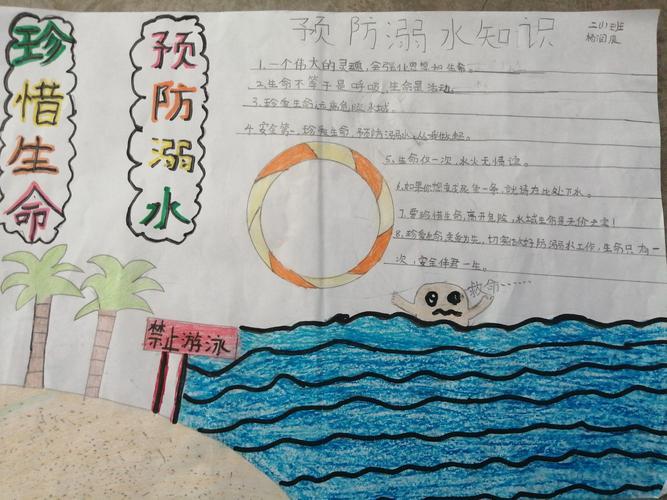 珍惜生命
预防溺水
预防溺水知识
二小班
1.一个伟大的灵魂，会强化思想和生命。
2.生命不等于是呼吸，生命是活动。
3.珍爱生命远离危险水域.
4.安全第一，珍爱生命，预防溺水，从我做起。
5.生命仅一次，水火无情谊。
6.如果你想变成鱼一条，就请
下水。
7.要珍惜生命，离开危险，水域生命是无价之宝！
8.珍爱生命，安全为先，切实做好防溺水工作，生命只有一
次，安全伴君一生。
救命……
禁止游泳